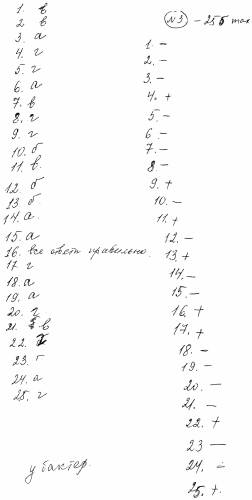 1. в
2. в
3. а
4. г
5. г
6. а
7. в
8. г
9. г
10. б
11. в.
12. б
13. б.
14. а.
15. а
16. все ответы правильно.
17. г
18. а
19. а
20. г
21. в
22. б
23. г
24. а
25. г
у бактер.
№3 – 25б max
1. –
2. –
3. –
4. +
5. –
6. –
7. –
8. –
9. +
10. –
11. +
12. –
13. +
14. –
15. –
16. +
17. +
18. –
19. –
20. –
21. –
22. +
23 –
24. –
25. +